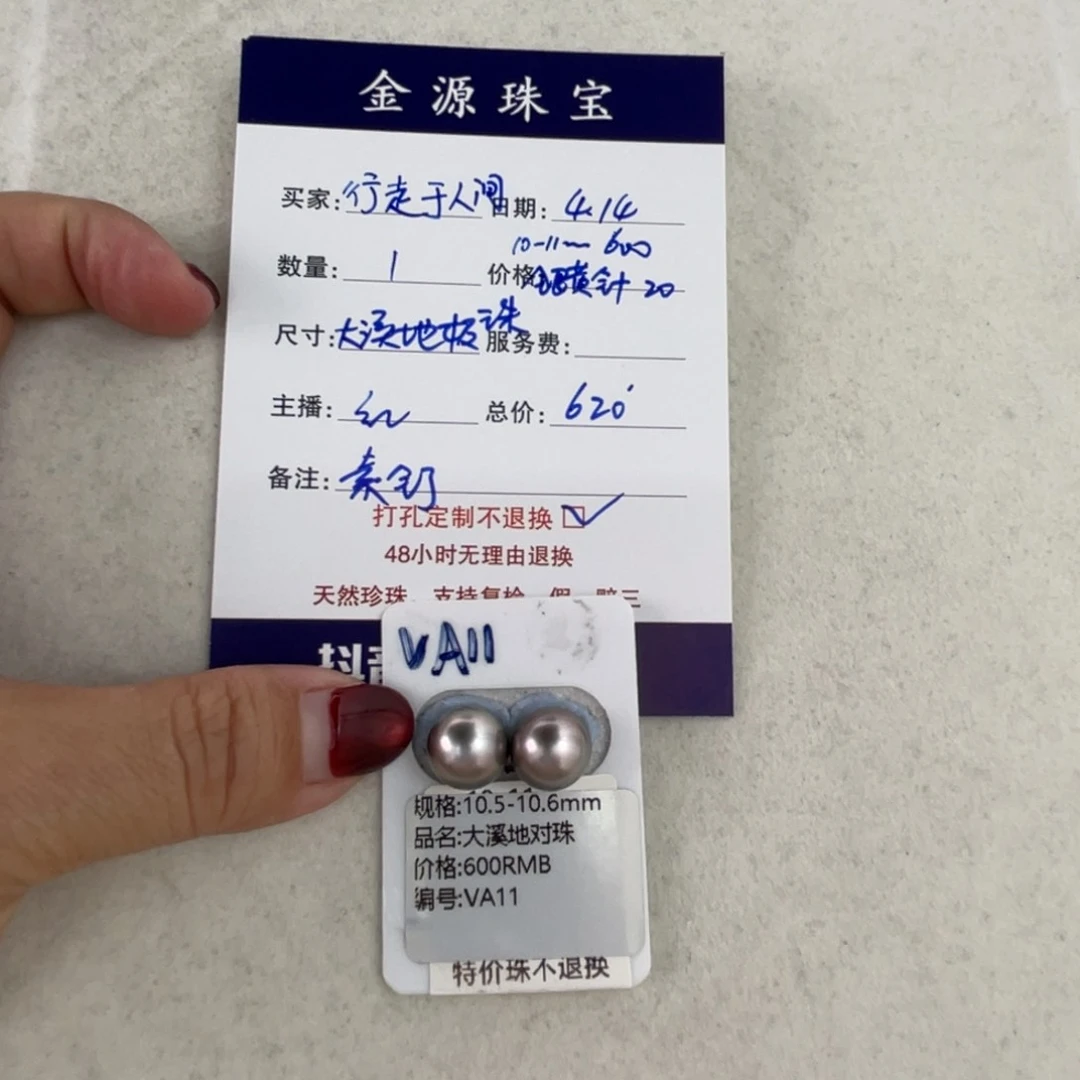 金源珠宝
买家:行走于人间 日期:4.14
10-11mm 600
数量:1 价格 20
尺寸:大溪地板珠 服务费:
主播:红 总价:620
备注:素
打孔定制不退换
48小时无理由退换
天然珍珠、支持复检 假一赔三
抖音
VA11
规格:10.5-10.6mm
品名:大溪地对珠
价格:600RMB
编号:VA11
特价珠不退换